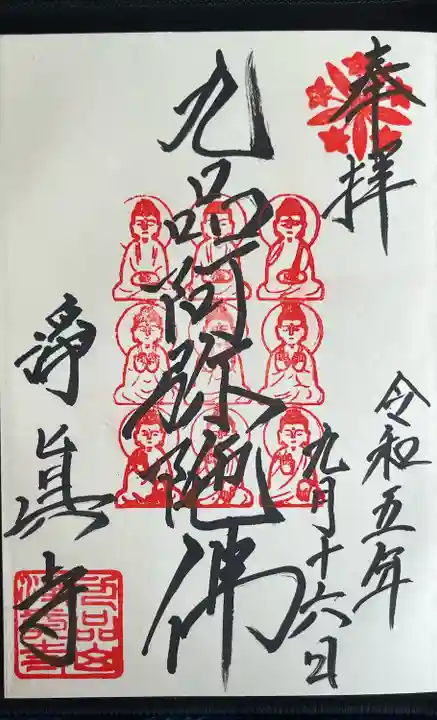 奉拝
令和五年
九月十六日
九品阿弥陀佛
浄真寺